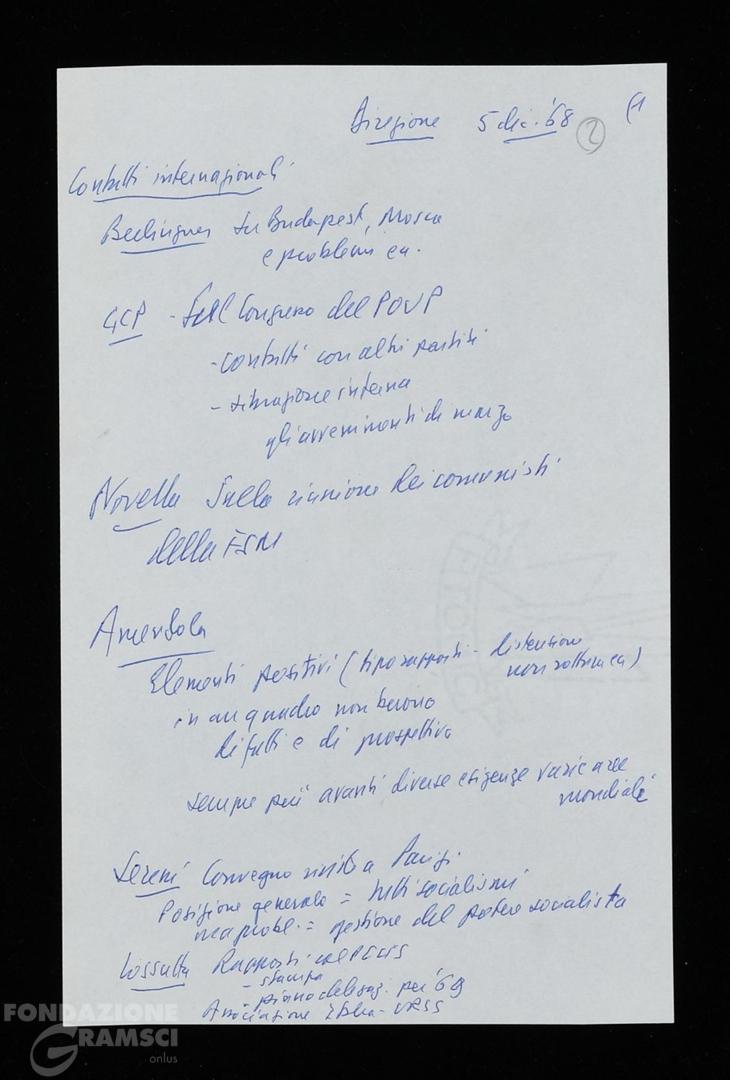 Direzione 5 dic. '68 (2) (1
Contatti internazionali
Berlinguer su Budapest, Mosca
e problemi ca.
GCP - Sul Congresso del POUP
- contatti con altri partiti
- situazione interna
gli avvenimenti di marzo
Novella Sulla riunione dei comunisti
della FSM
Amendola
Elementi positivi (tipo rapporti - distensione
non rottura ca)
in un quadro non buono
di fatti e di prospettiva
sempre più avanti diverse esigenze varie aree
mondiali
Sereni Convegno rivista Parigi
Posizione generale = tutti socialismi
ma probl. = gestione del potere socialista
Cossutta Rapporti col PCUS
- stampa
- piano delegaz. per '69
Associazione Italia-URSS
FONDAZIONE
GRAMSCI
onlus